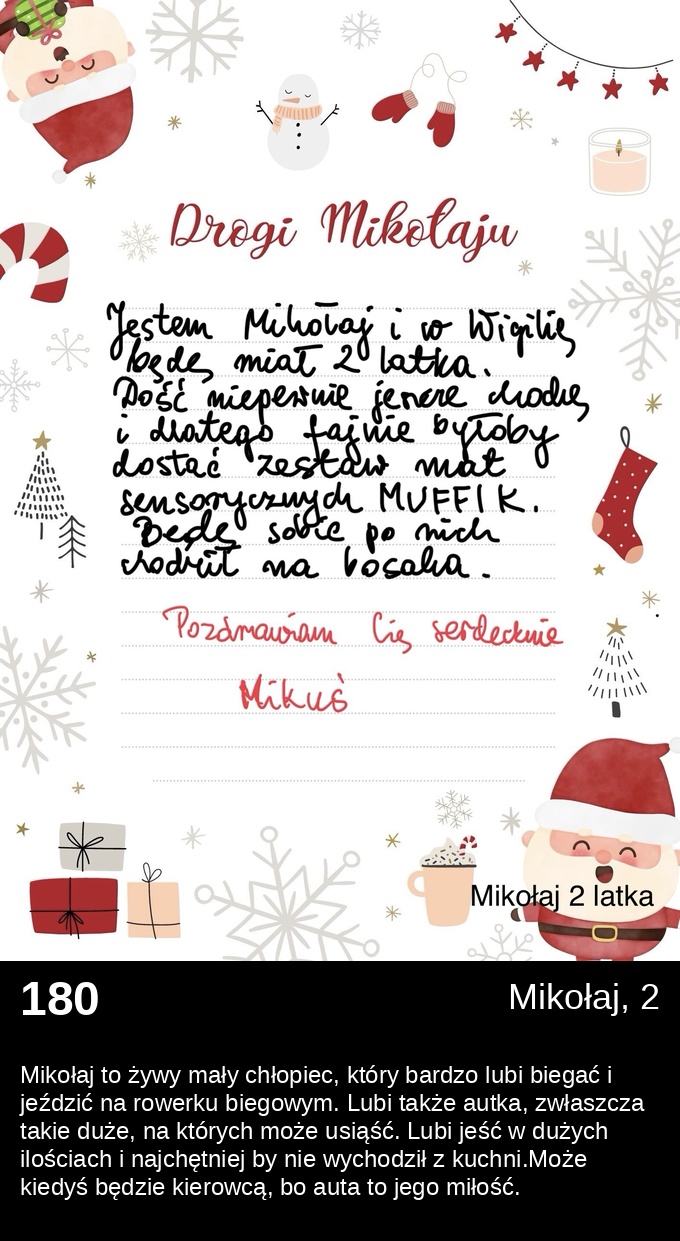 Drogi Mikołaju
Jestem Mikołaj i w Wigilię
będę miał 2 latka.
Dość niepewnie jeszcze chodzę
i dlatego fajnie byłoby
dostać zestaw mat
sensorycznych MUFFIK.
Będę sobie po nich
chodził na bosaka.
Pozdrawiam Cię serdecznie
Mikuś
Mikołaj 2 latka
180
Mikołaj, 2
Mikołaj to żywy mały chłopiec, który bardzo lubi biegać i
jeździć na rowerku biegowym. Lubi także autka, zwłaszcza
takie duże, na których może usiąść. Lubi jeść w dużych
ilościach i najchętniej by nie wychodził z kuchni.Może
kiedyś będzie kierowcą, bo auta to jego miłość.